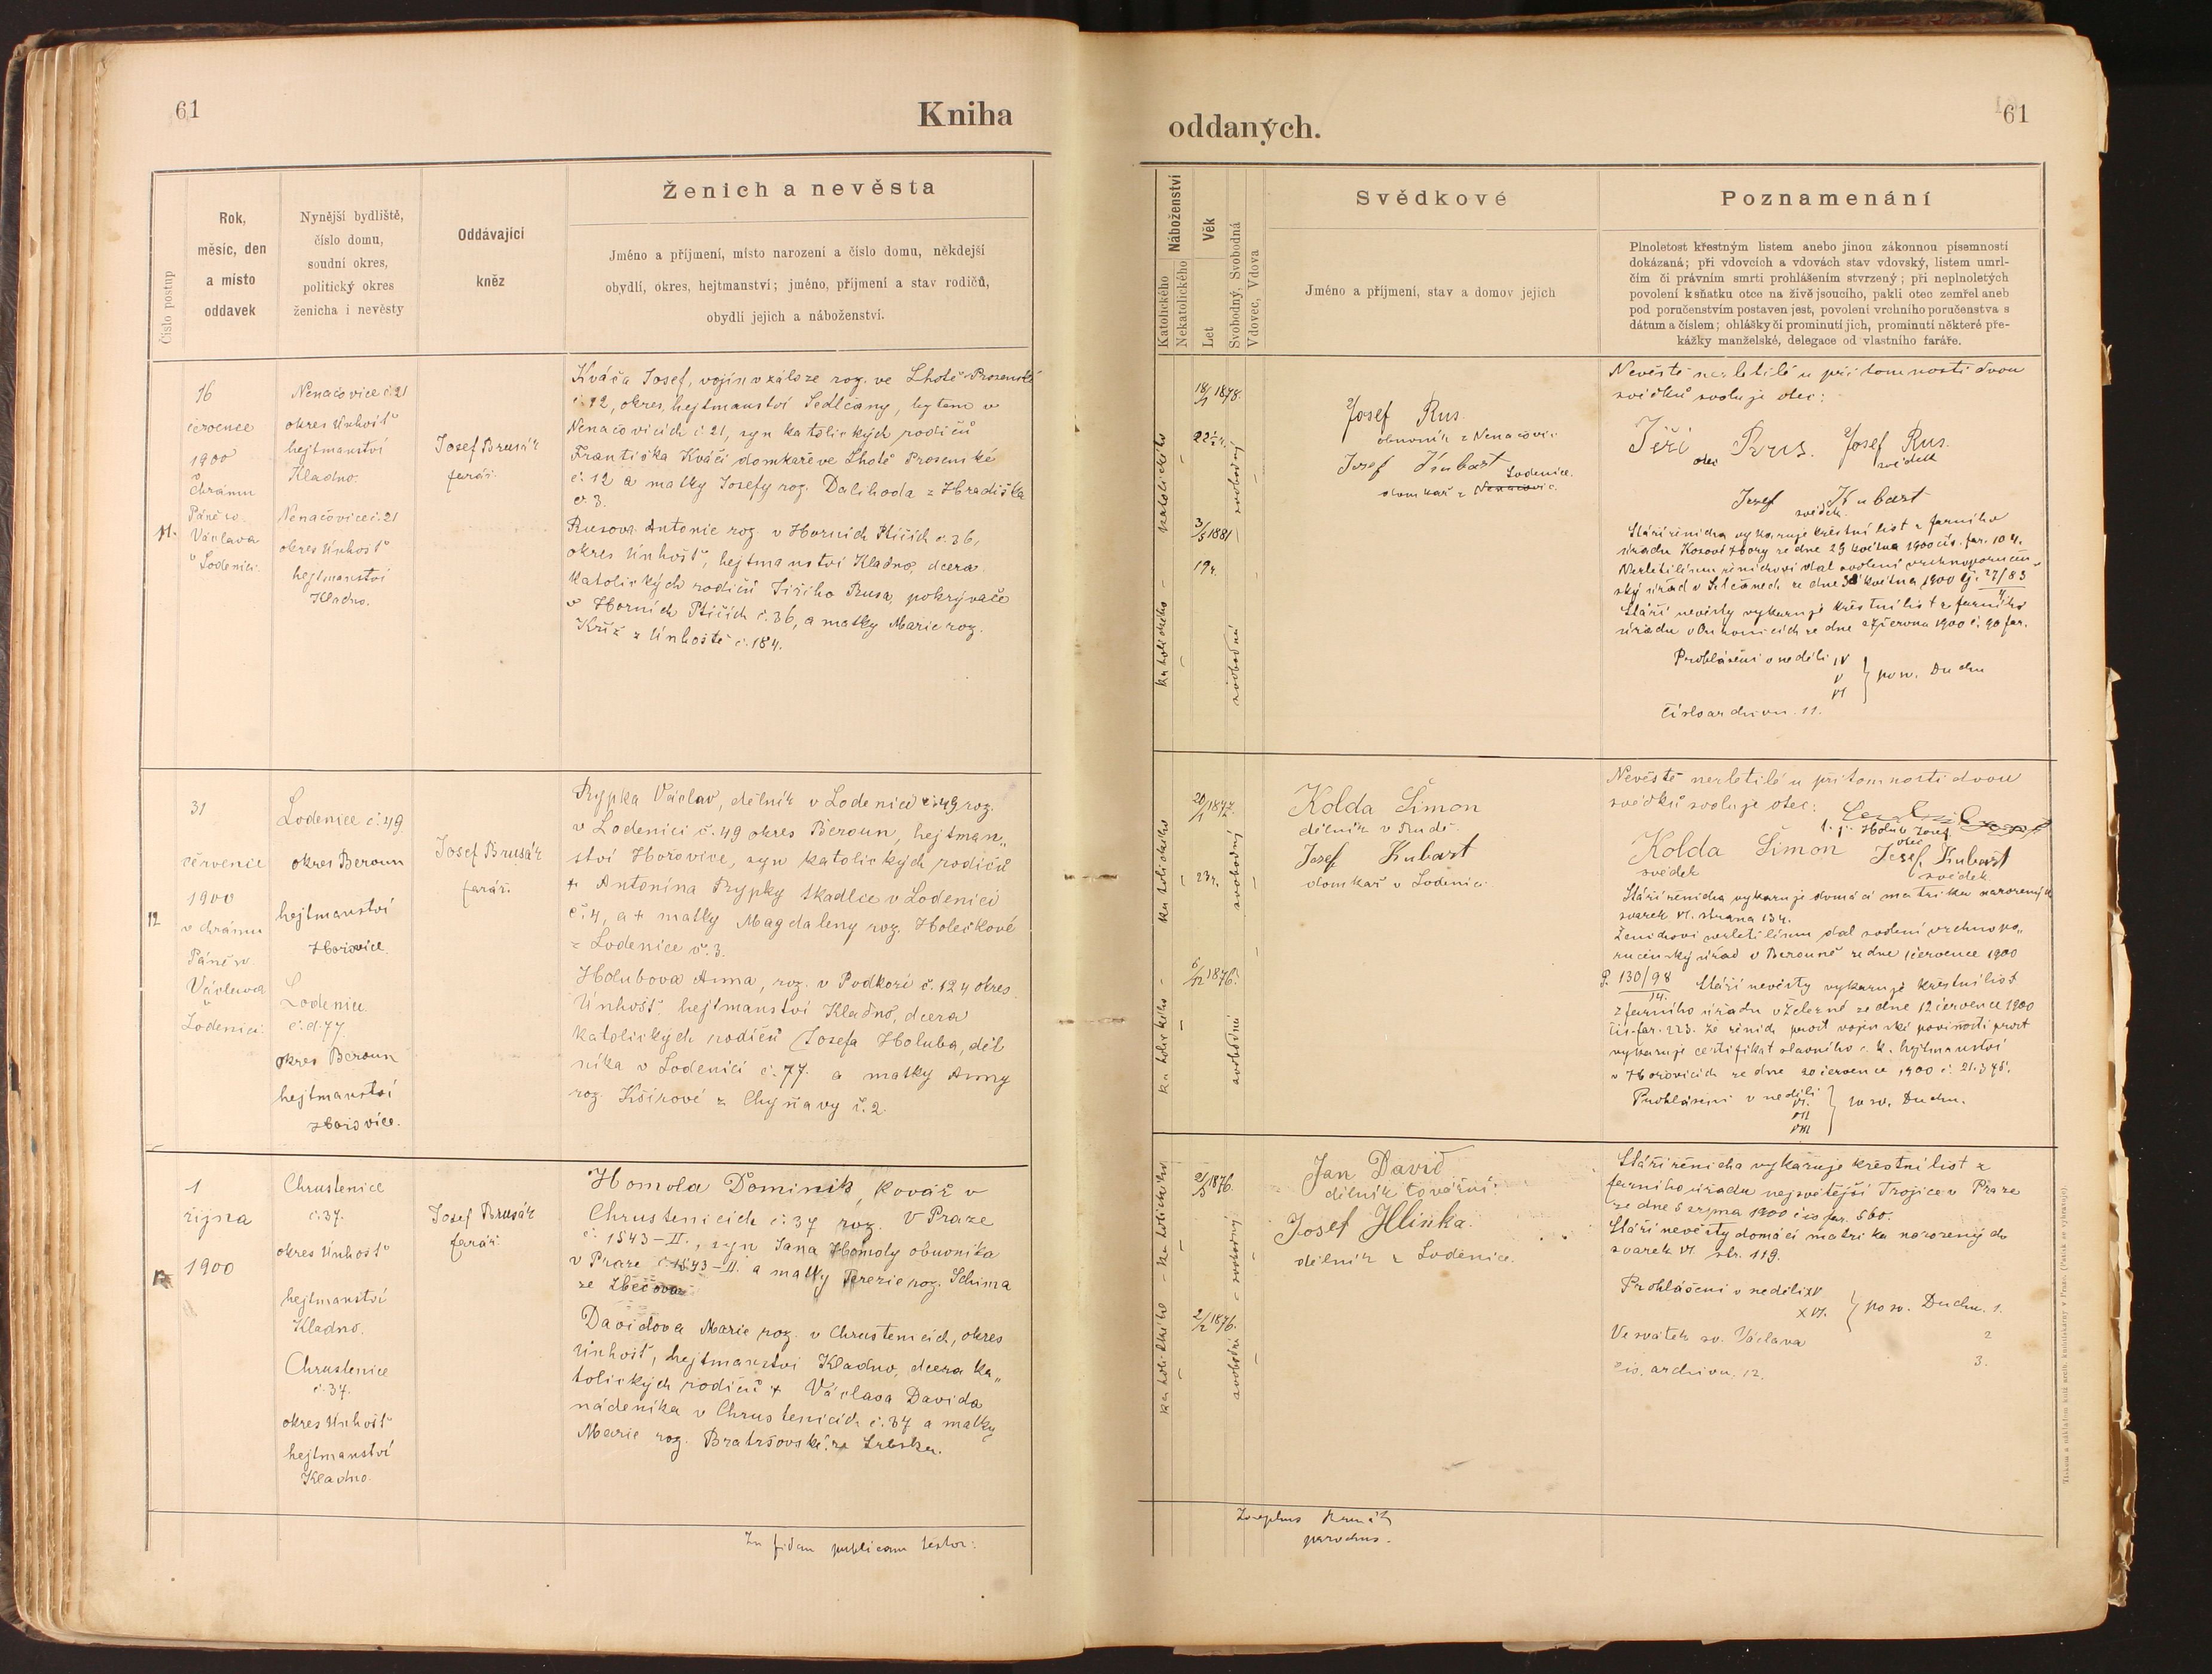 61
Kniha
Číslo postup
Rok,
měsíc, den
a místo
oddavek
Nynější bydliště,
číslo domu,
soudní okres,
politický okres
ženicha i nevěsty
Oddávající
kněz
Ženich a nevěsta
Jméno a příjmení, místo narození a číslo domu, někdejší
obydlí, okres, hejtmanství; jméno, příjmení a stav rodičů,
obydlí jejich a náboženství.
11.
16
července
1900
v
chrámu
Páně sv.
Václava
v Loděnici.
Nenačovice č. 21
okres Únhošť
hejtmanství
Kladno.
Nenačovice č. 21
okres Únhošť
hejtmanství
Kladno.
Josef Brusák
farář.
Kváča Josef, vojín v záloze roz. ve Lhotě Prosenické
č. 12, okres, hejtmanství Sedlčany, bytem v
Nenačovicích č 21, syn katolických rodičů
Františka Kváči domkaře ve Lhotě Prosenické
č. 12 a matky Josefy roz. Dalihoda z Hradiška
č. 3.
Rusova Antonie roz. v Horních Ptičích č. 36,
okres Únhošť, hejtmanství Kladno, dcera
katolických rodičů Jiřího Rusa, pokrývače
v Horních Ptičích č. 36, a matky Marie roz.
Kříž z Únhoště č. 184.
12
31
července
1900
v chrámu
Páně sv.
Václava
v
Loděnici.
Loděnice č. 49
okres Beroun
hejtmanství
Hořovice.
Loděnice
č. d. 77.
okres Beroun
hejtmanství
Hořovice.
Josef Brusák
farář.
Rypka Václav, dělník v Loděnici č. 49 roz.
v Loděnici č. 49 okres Beroun, hejtman„
ství Hořovice, syn katolických rodičů
+ Antonína Rypky tkadlce v Loděnici
č. 4, a + matky Magdaleny roz. Holečkové
z Loděnice č. 3.
Holubova Anna, roz. v Podkozí č. 124 okres
Únhošť, hejtmanství Kladno, dcera
katolických rodičů Josefa Holuba, děl
níka v Loděnici č. 77. a matky Anny
roz. Kšírové z Chyňavy č. 2
1
října
1900
Chrustenice
č. 37.
okres Únhošť
hejtmanství
Kladno.
Chrustenice
č. 37.
okres Únhošť
hejtmanství
Kladno.
Josef Brusák
farář.
Homola Dominik, kovář v
Chrustenicích č. 37 roz. v Praze
č. 1543–II., syn Jana Homoly obuvníka
v Praze č. 1543–II. a matky Terezie roz. Schima
ze Zbečova
Davidova Marie roz. v Chrustenicích, okres
Únhošť, hejtmanství Kladno, dcera ka„
tolických rodičů + Václava Davida
nádeníka v Chrustenicích č. 37 a matky
Marie roz. Bratršovské ze Srbska.
In fidem publicam testor:
oddaných.
61
Náboženství
Katolického
Nekatolického
Věk
Let
Svobodný, Svobodná
Vdovec, Vdova
Svědkové
Jméno a příjmení, stav a domov jejich
Poznamenání
Plnoletost křestným listem anebo jinou zákonnou písemností
dokázaná; při vdovcích a vdovách stav vdovský, listem umrl-
čím či právním smrti prohlášením stvrzený; při neplnoletých
povolení k sňatku otce na živě jsoucího, pakli otec zemřel aneb
pod poručenstvím postaven jest, povolení vrchního poručenstva s
dátum a číslem; ohlášky či prominutí jich, prominutí některé pře-
kážky manželské, delegace od vlastního faráře.
katolického
katolického
18/1 1878.
22 1/2 r.
3/5 1881
19 r.
svobodný
svobodná
Josef Rus.
obuvník z Nenačovic
Josef Kubart
Loděnice.
domkář z Nenačovic.
Nevěstě nezletilé u přítomnosti dvou
svědků svoluje otec:
Jiří Rus. Josef Rus.
otec svědek
Josef Kubart
svědek.
Stáří ženicha vykazuje křestní list z farního
úřadu Kosovohory ze dne 29 května 1900 čís. far. 104.
Nezletilému ženichovi dal svolení vrchnoporučen
ský úřad v Selčanech ze dne 30 května 1900 čj. 27/83
Stáří nevěsty vykazuje křestní list z farního
Prohlášení v neděli IV
V
VI
po sv. Duchu
číslo archivu. 11.
katolického
katolického
20/1 1877.
23 r.
6/12 1876.
svobodný
svobodná
Kolda Šimon
dělník v Rudě.
Josef Kubart
domkář v Loděnici
Nevěstě nezletilé u přítomnosti dvou
svědků svoluje otec:
Holub Josef
otec
Kolda Šimon Josef Kubart
svědek svědek.
Stáří ženicha vykazuje domácí matrika narozených
svazek VI. strana 134.
Ženichovi nezletilému dal svolení vrchnopo„
ručenský úřad v Berouně ze dne července 1900
P. 130/98
14.
Stáří nevěsty vykazuje křestní list
z farního úřadu v Železné ze dne 12 července 1900
čís. far. 223. Že ženich prost vojenské povinnosti prost
vykazuje certifikat slavného c. k. hejtmanství
v Hořovicích ze dne 20 července 1900 č. 21.375.
Prohlášení v neděli
VI.
VII
VIII
po sv. Duchu.
katolického
katolického
2/3 1876.
2/2 1876.
svobodný
svobodná
Jan David
dělník tovární.
Josef Hlinka.
dělník z Loděnice.
Stáří ženicha vykazuje křestní list z
farního úřadu nejsvětější Trojice v Praze
ze dne 5 srpna 1900 čís far. 560.
Stáří nevěsty domácí matrika narozených
svazek VI. str. 119.
Prohlášení v neděli XV
XVI.
po sv. Duchu. 1.
Ve svátek sv. Václava 2
3.
čís. archivu. 12.
Josephus Brusák
parochus.